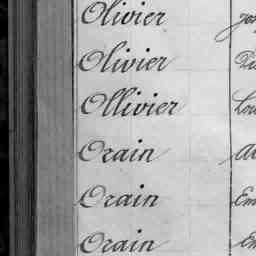 Olivier
Olivier
Ollivier
Orain
Orain
Orain